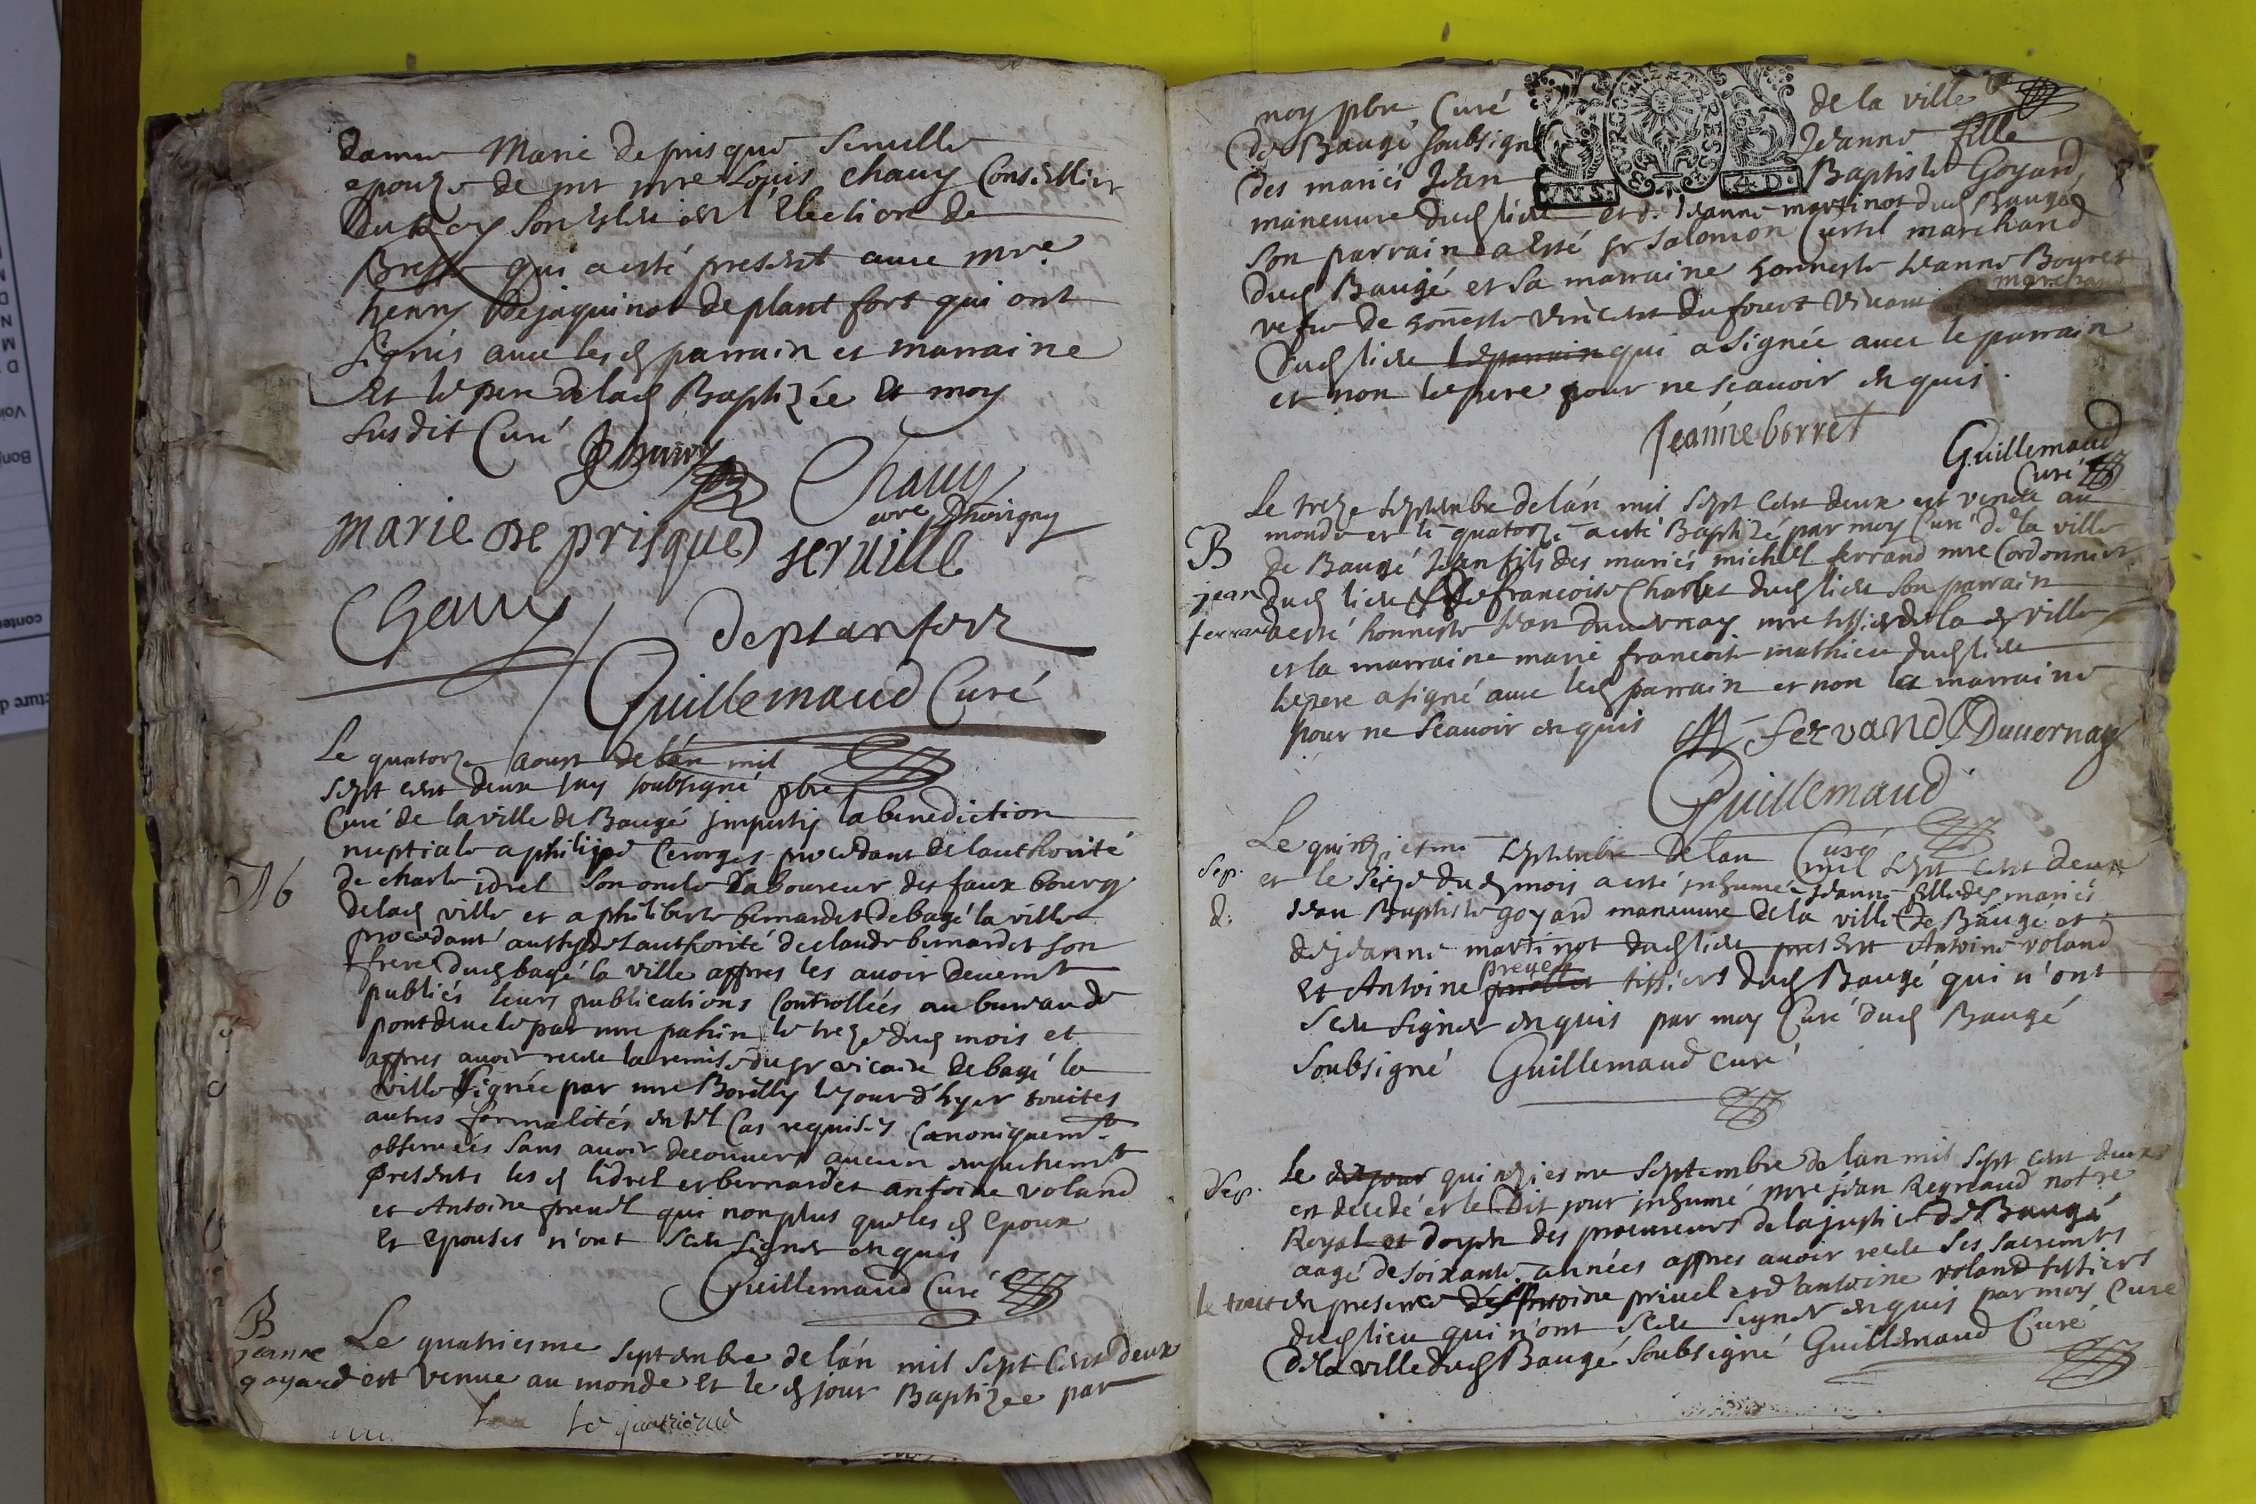 dame Marie de prisque Seruille
epouze de mr mre Louis chauy Conseillier
du Roy son eslu en l'Election de
Bresse qui a esté present auec mre
henry Dejaquinot de plant fort qui ont
signés auec lesd parrain et marraine
et le pere de lad Baptizée et moy
susdit Curé
Chauy
curé Dhoirigny
marie de prisque seruille
Chauy
deplanfort
Guillemaud Curé
Le quatorze aoust de lán mil
sept cent deux jay soubsigné pbre
Curé de la ville de Baugé jmparty la benediction
nuptiale a philippe Cerorges procedant de lauthorité
de charle idrel son oncle Laboureur des faux bourg
de lad ville et a philiberte bernardet de bagé la ville
procedant aussy de l authorité de claude bernardet son
frere dud bagé la ville appres les auoir deuemt
publiés leurs publications Controllées au bureau de
pontdeuele par mre pahin le treze dud mois et
appres auoir receu la remise du sr vicaire de bagé la
ville signée par mre Borelly le jour d'hyer touttes
autres formalités en tel Cas requises canoniquemt
obseruées sans auoir decouuert aucun empechemt
presents les d lidrel et bernardet antoine voland
et Antoine preuel qui non plus que les d Epoux
et Epouses n'ont sceu signer enquis
Guillemaud Curé
B
jeanne
goyard
Le quatriesme septembre de lán mil sept Cent deux
est venue au monde et le d jour Baptizee par
moy pbre Curé de la ville
de Baugé soubsigné Jeanne fille
des mariés Jean Baptiste Goyard
maneuure dud lieu et d. Jeanne martinot dud Baugé
son parrain a esté sr Salomon Curtil marchand
dud Baugé et sa marraine honneste Jeanne Boyret
vefue de honneste vincent dufourt viuant marchand
dud lieu le parrain qui a signée auec le parrain
et non le pere pour ne scauoir enquis.
Jeanne borret
Guillemaud
Curé
Le treze septembre de lán mil sept cent deux est venu au
monde et le quatorze a esté Baptizé par moy Curé de la ville
B
de Baugé Jean fils des mariés michel ferrand mre Cordonnier
jean
dud lieu et de francoise Charlet dud lieu son parrain
ferrand
a esté honneste Jean duuernay mre tissier de la d ville
et la marraine marie francoise mathieu dud lieu
le pere a signé auec led parrain et non la marraine
pour ne scauoir enquis
M ferrand Duuernay
Guillemaud
Curé
Le quinziesme septembre de lan mil sept cent deux
Sep.
et le seize dud mois a esté jnhumée jeanne fille des mariés
d.
Jean Baptiste goyard maneuure de la ville de Baugé et
de jeanne martinot dud lieu present Antoine voland
et Antoine preuel tissiers dud Baugé qui n'ont
sceu signer enquis par moy Curé dud Baugé
soubsigné Guillemaud curé
Sep.
Le dit jour quinziesme septembre de lan mil sept cent deux
est decedé et le Dit jour jnhumé mre jean Reynaud notre
Royal et doyen des procureurs de la justice de Baugé
aagé de soixante années appres auoir receu ses sacremts
le tout en presence des Antoine priuel et d'antoine voland tissiers
dud lieu qui n'ont sceu signer enquis par moy Curé
de la ville dud Baugé soubsigné Guillemaud Curé